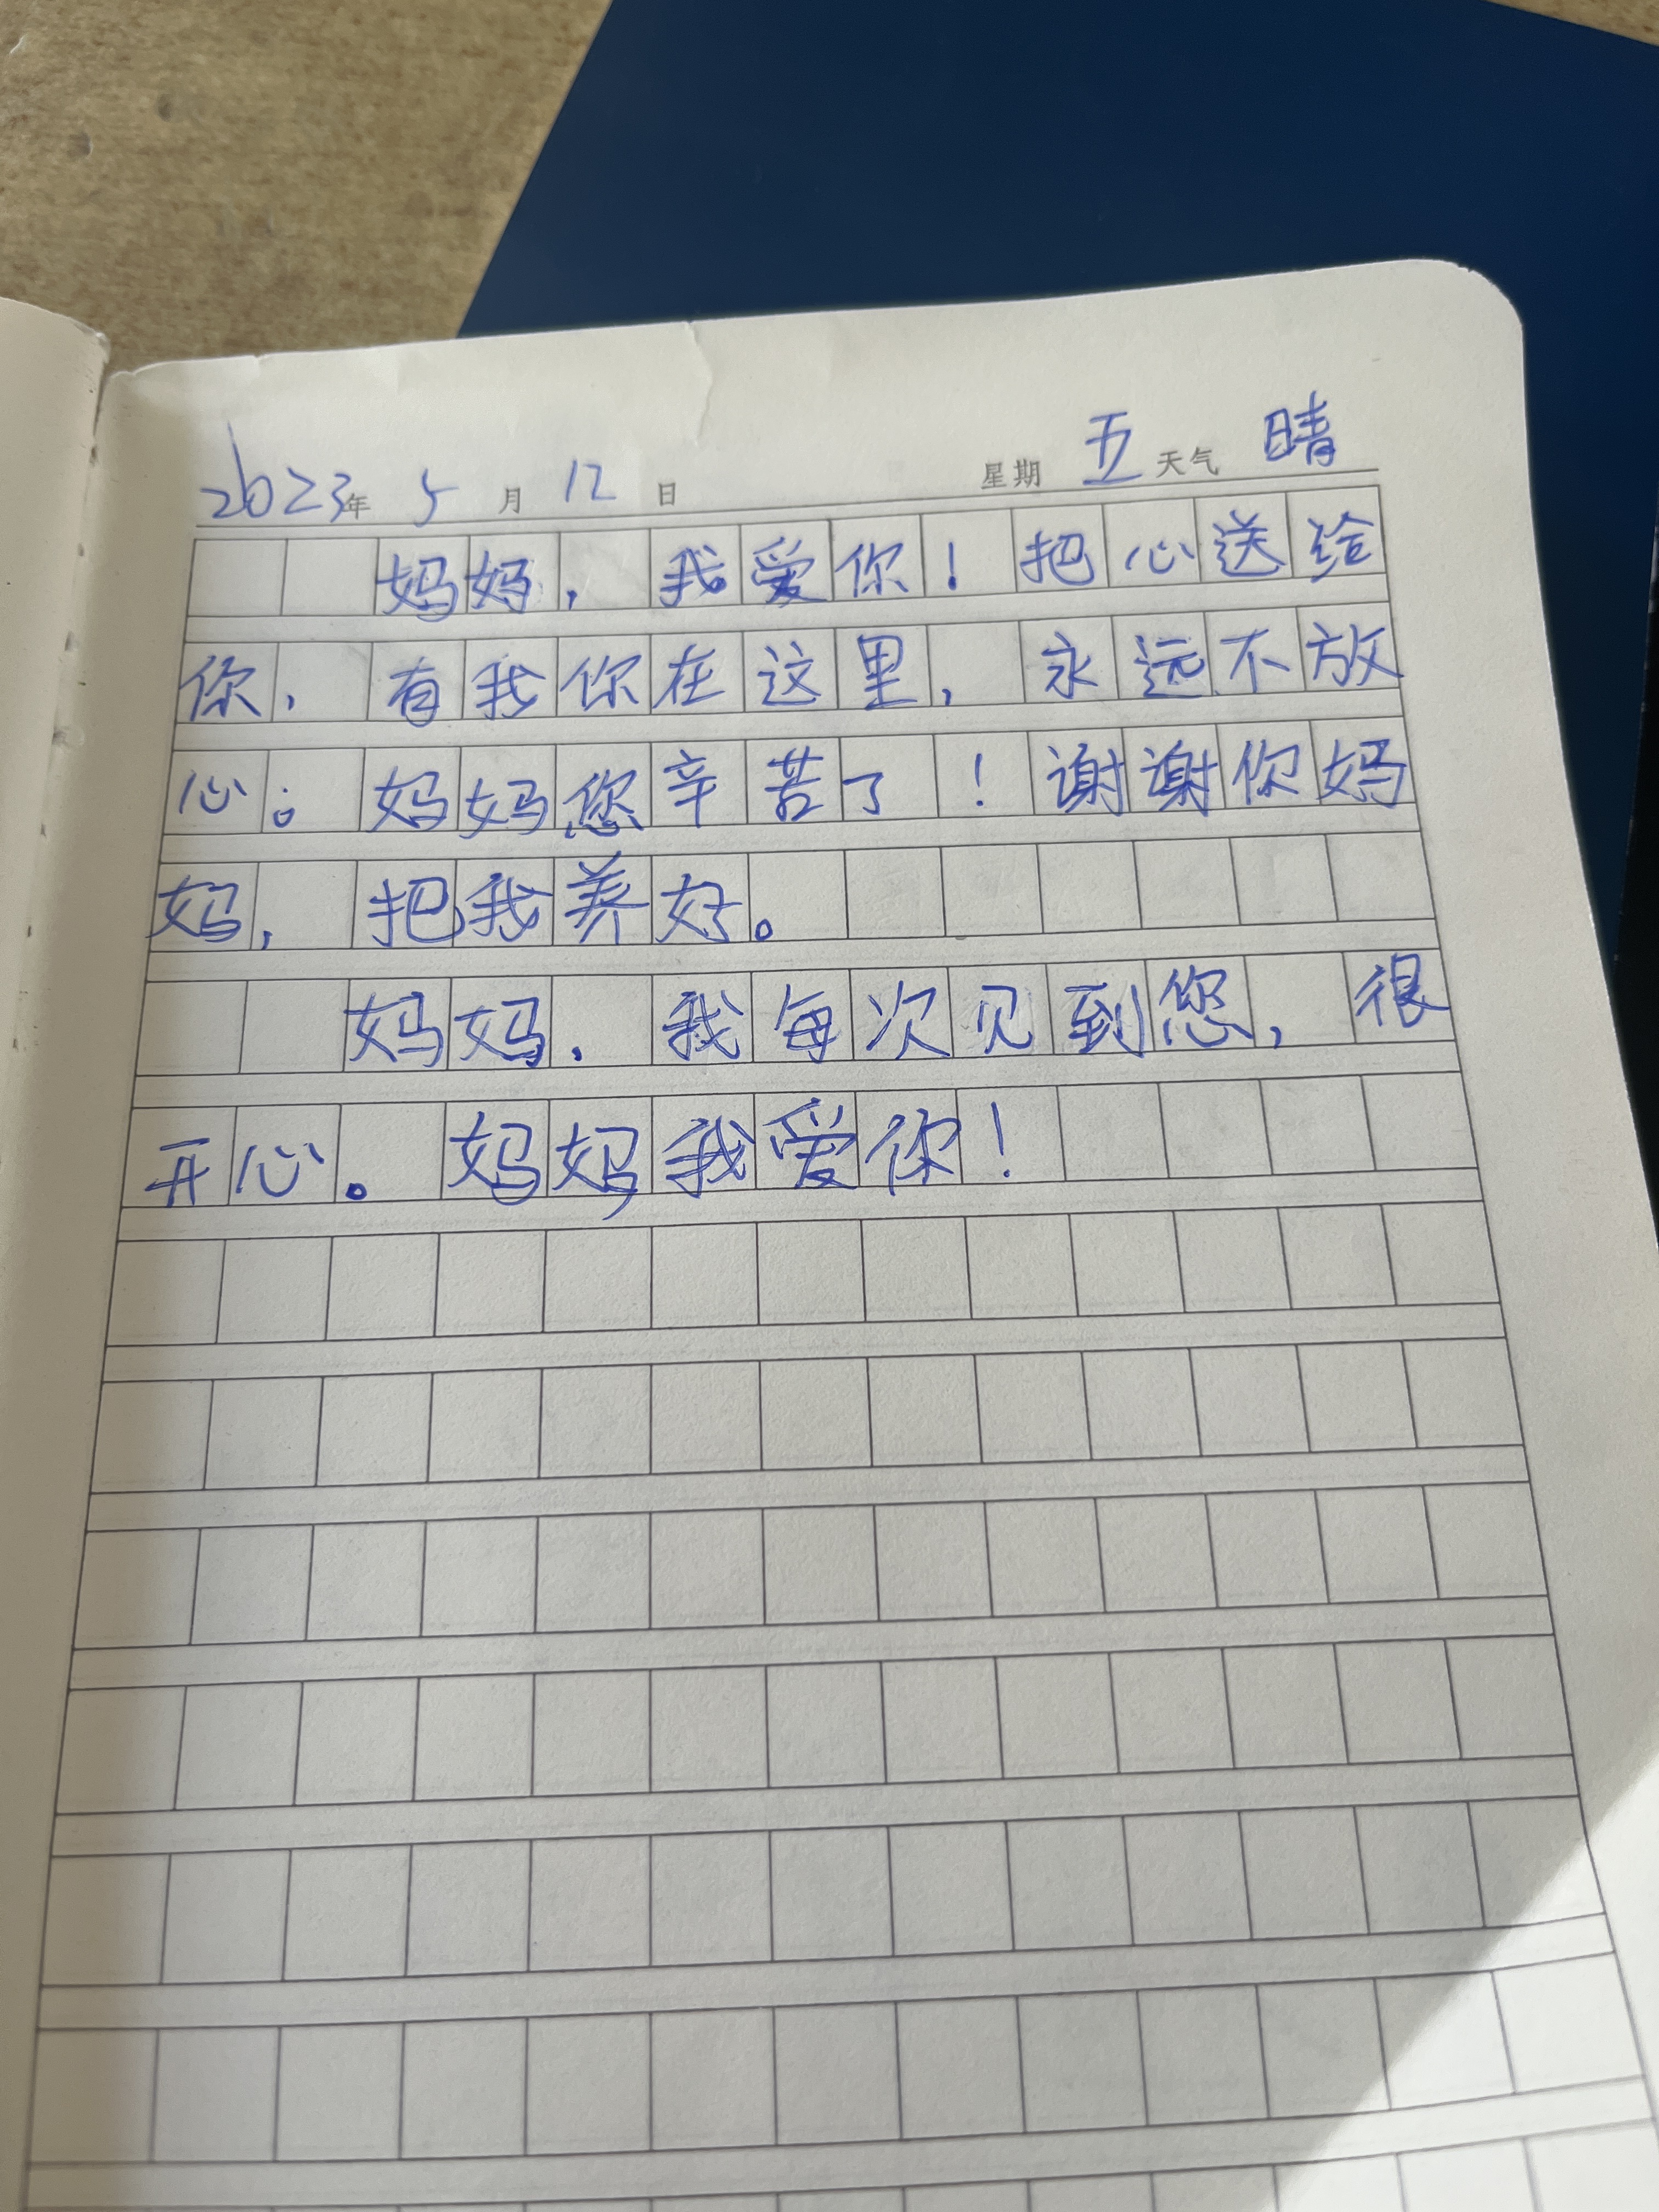 2023年 5月 12日 星期 五 天气 晴
妈妈，我爱你！把心送给
你，有我你在这里，永远不放
心；妈妈您辛苦了！谢谢你妈
妈，把我养好。
妈妈，我每次见到您，很
开心。妈妈我爱你！